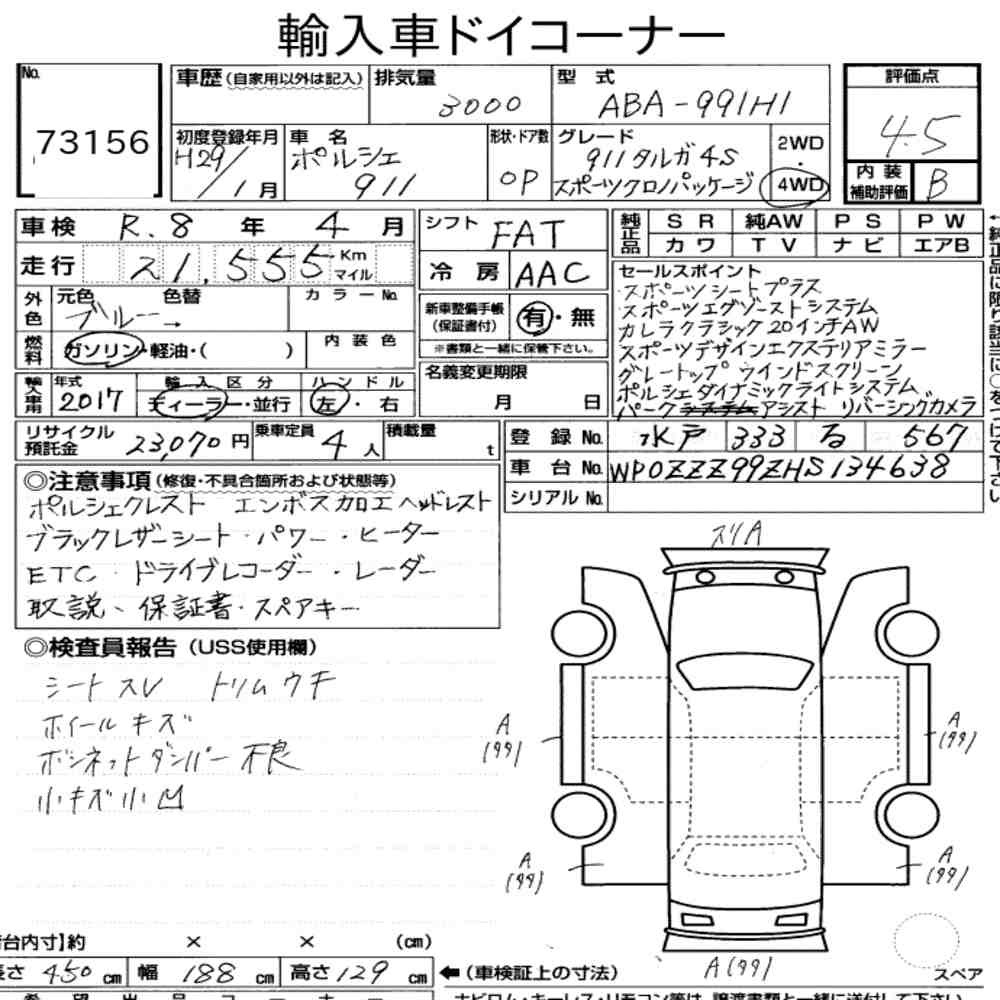 輸入車ドイコーナー
No. 73156
車歴(自家用以外は記入)
排気量 3000
型式 ABA-991H1
評価点 4.5
内装補助評価 B
初度登録年月 H29/1月
車名 ポルシェ 911
形状・ドア数 OP
グレード 911タルガ4S
スポーツクロノパッケージ
2WD・4WD
車検 R.8年4月
走行 21,555 Km マイル
シフト FAT
冷房 AAC
純正品 SR 純AW PS PW
カワ TV ナビ エアB
外色 元色 ブルー→ 色替 カラーNo.
燃料 ガソリン・軽油・( ) 内装色
新車整備手帳(保証書付) 有・無
※書類と一緒に保管下さい。
名義変更期限 月 日
セールスポイント
スポーツシートプラス
スポーツエグゾーストシステム
カレラクラシック20インチAW
スポーツデザインエクステリアミラー
グレートップウインドスクリーン
ポルシェダイナミックライトシステム
パークアシスト リバーシングカメラ
輸入車用 年式 2017 輸入区分 ディーラー・並行 ハンドル 左・右
リサイクル預託金 23,070円
乗車定員 4人
積載量 t
登録No. 水戸 333 る 567
車台No. WP0ZZZ99ZHS134638
シリアルNo.
◎注意事項(修復・不具合箇所および状態等)
ポルシェクレスト エンボス加工ヘッドレスト
ブラックレザーシート・パワー・ヒーター
ETC・ドライブレコーダー・レーダー
取説、保証書・スペアキー
◎検査員報告(USS使用欄)
シートスレ トリムウキ
ホイールキズ
ボンネットダンパー不良
小キズ小凹
スリA
A(99)
A(99)
A(99)
A(99)
A(99)
スペア
台内寸】約 × × (cm)
長さ 450cm 幅 188cm 高さ 129cm
←(車検証上の寸法)